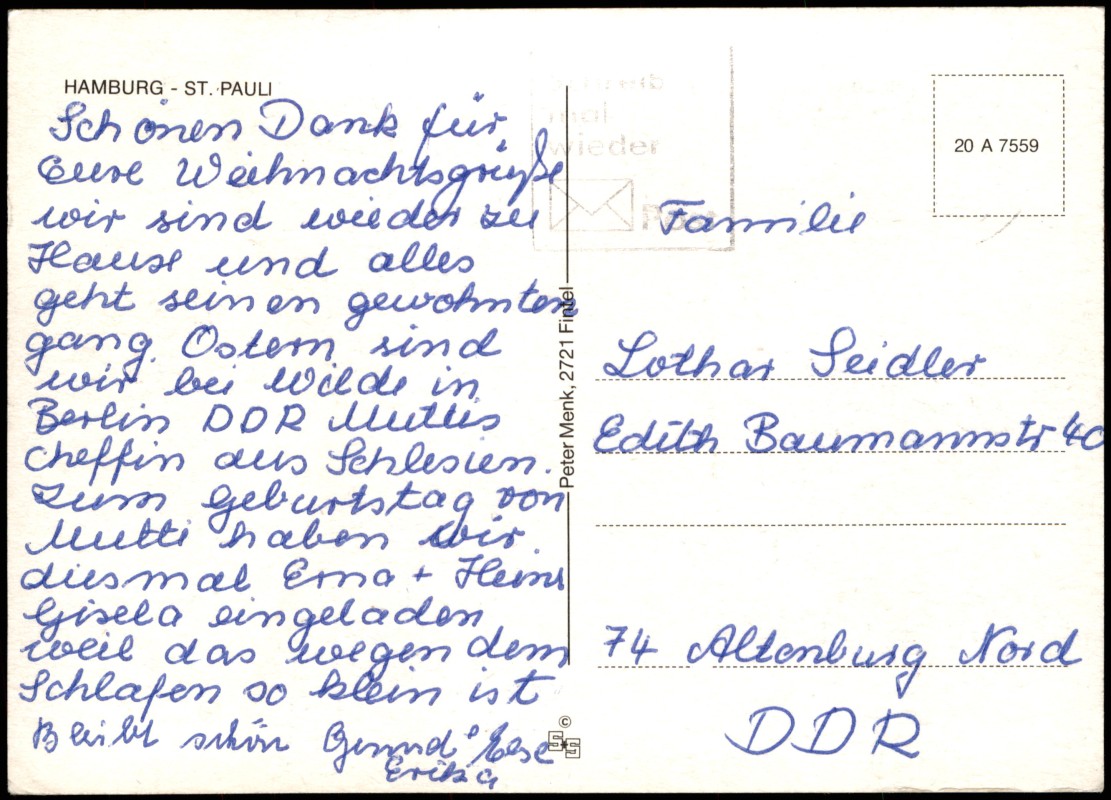 HAMBURG - ST. PAULI
Schönen Dank für
Eure Weihnachtsgrüße
wir sind wieder zu
Hause und alles
geht seinen gewohnten
gang. Ostern sind
wir bei Wilde in
Berlin DDR Muttis
cheffin aus Schlesien.
zum geburtstag von
Mutti haben wir
diesmal Erna + Heinz
Gisela eingeladen
weil das wegen dem
Schlafen so klein ist
Bleibt schön Gesund Else
Erika
Peter Menk, 2721 Fintel
©
mal
wieder
Post
20 A 7559
Familie
Lothar Seidler
Edith Baumannstr 40
74 Altenburg Nord
DDR